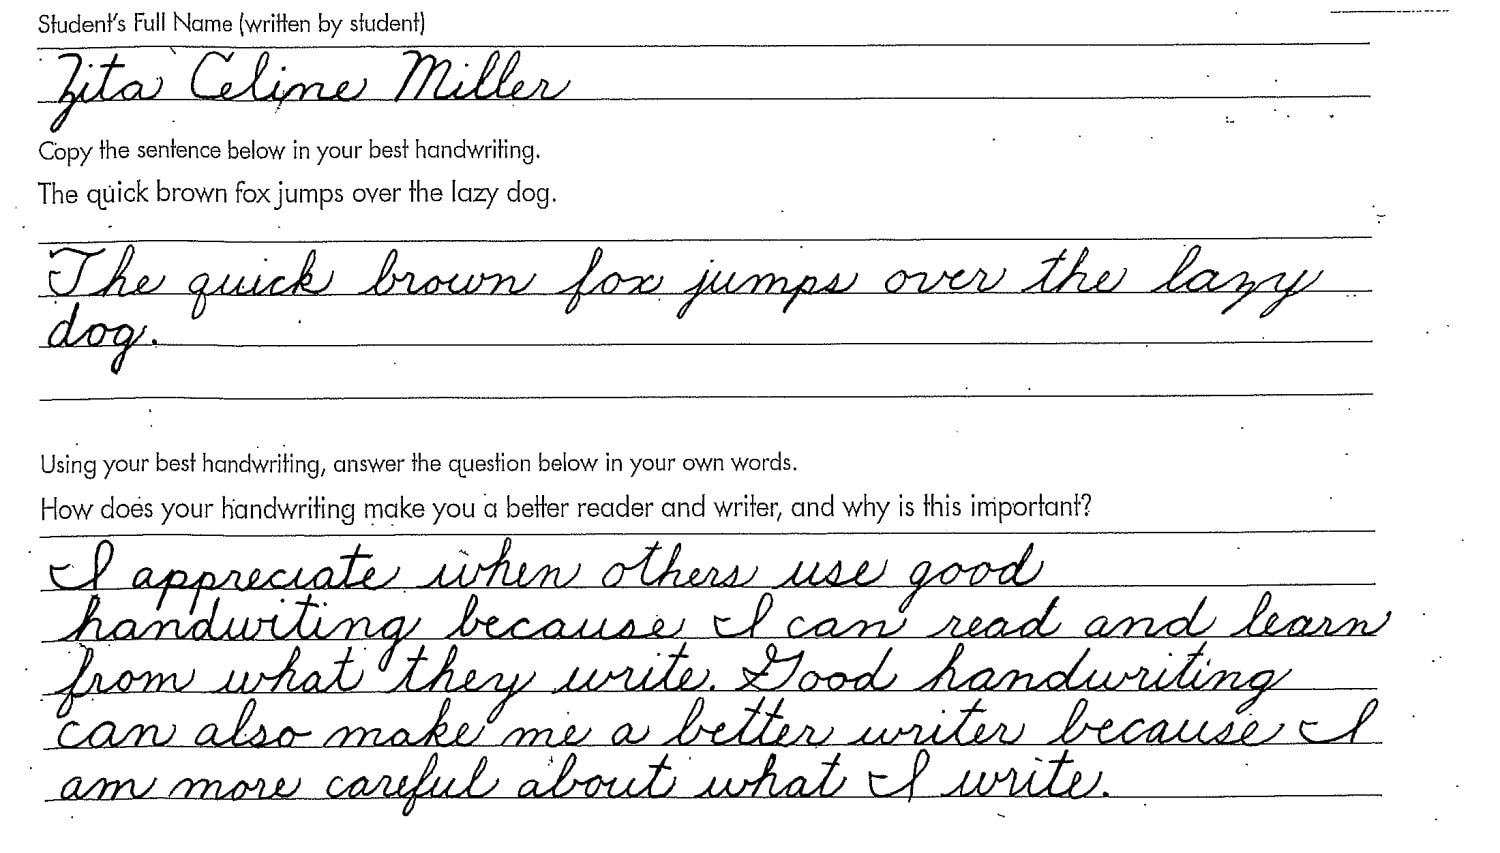 Student's Full Name (written by student)
Zita Celine Miller
Copy the sentence below in your best handwriting.
The quick brown fox jumps over the lazy dog.
The quick brown fox jumps over the lazy
dog.
Using your best handwriting, answer the question below in your own words.
How does your handwriting make you a better reader and writer, and why is this important?
I appreciate when others use good
handwiting because I can read and learn
from what they write. Good handwriting
can also make me a better writer because I
am more careful about what I write.